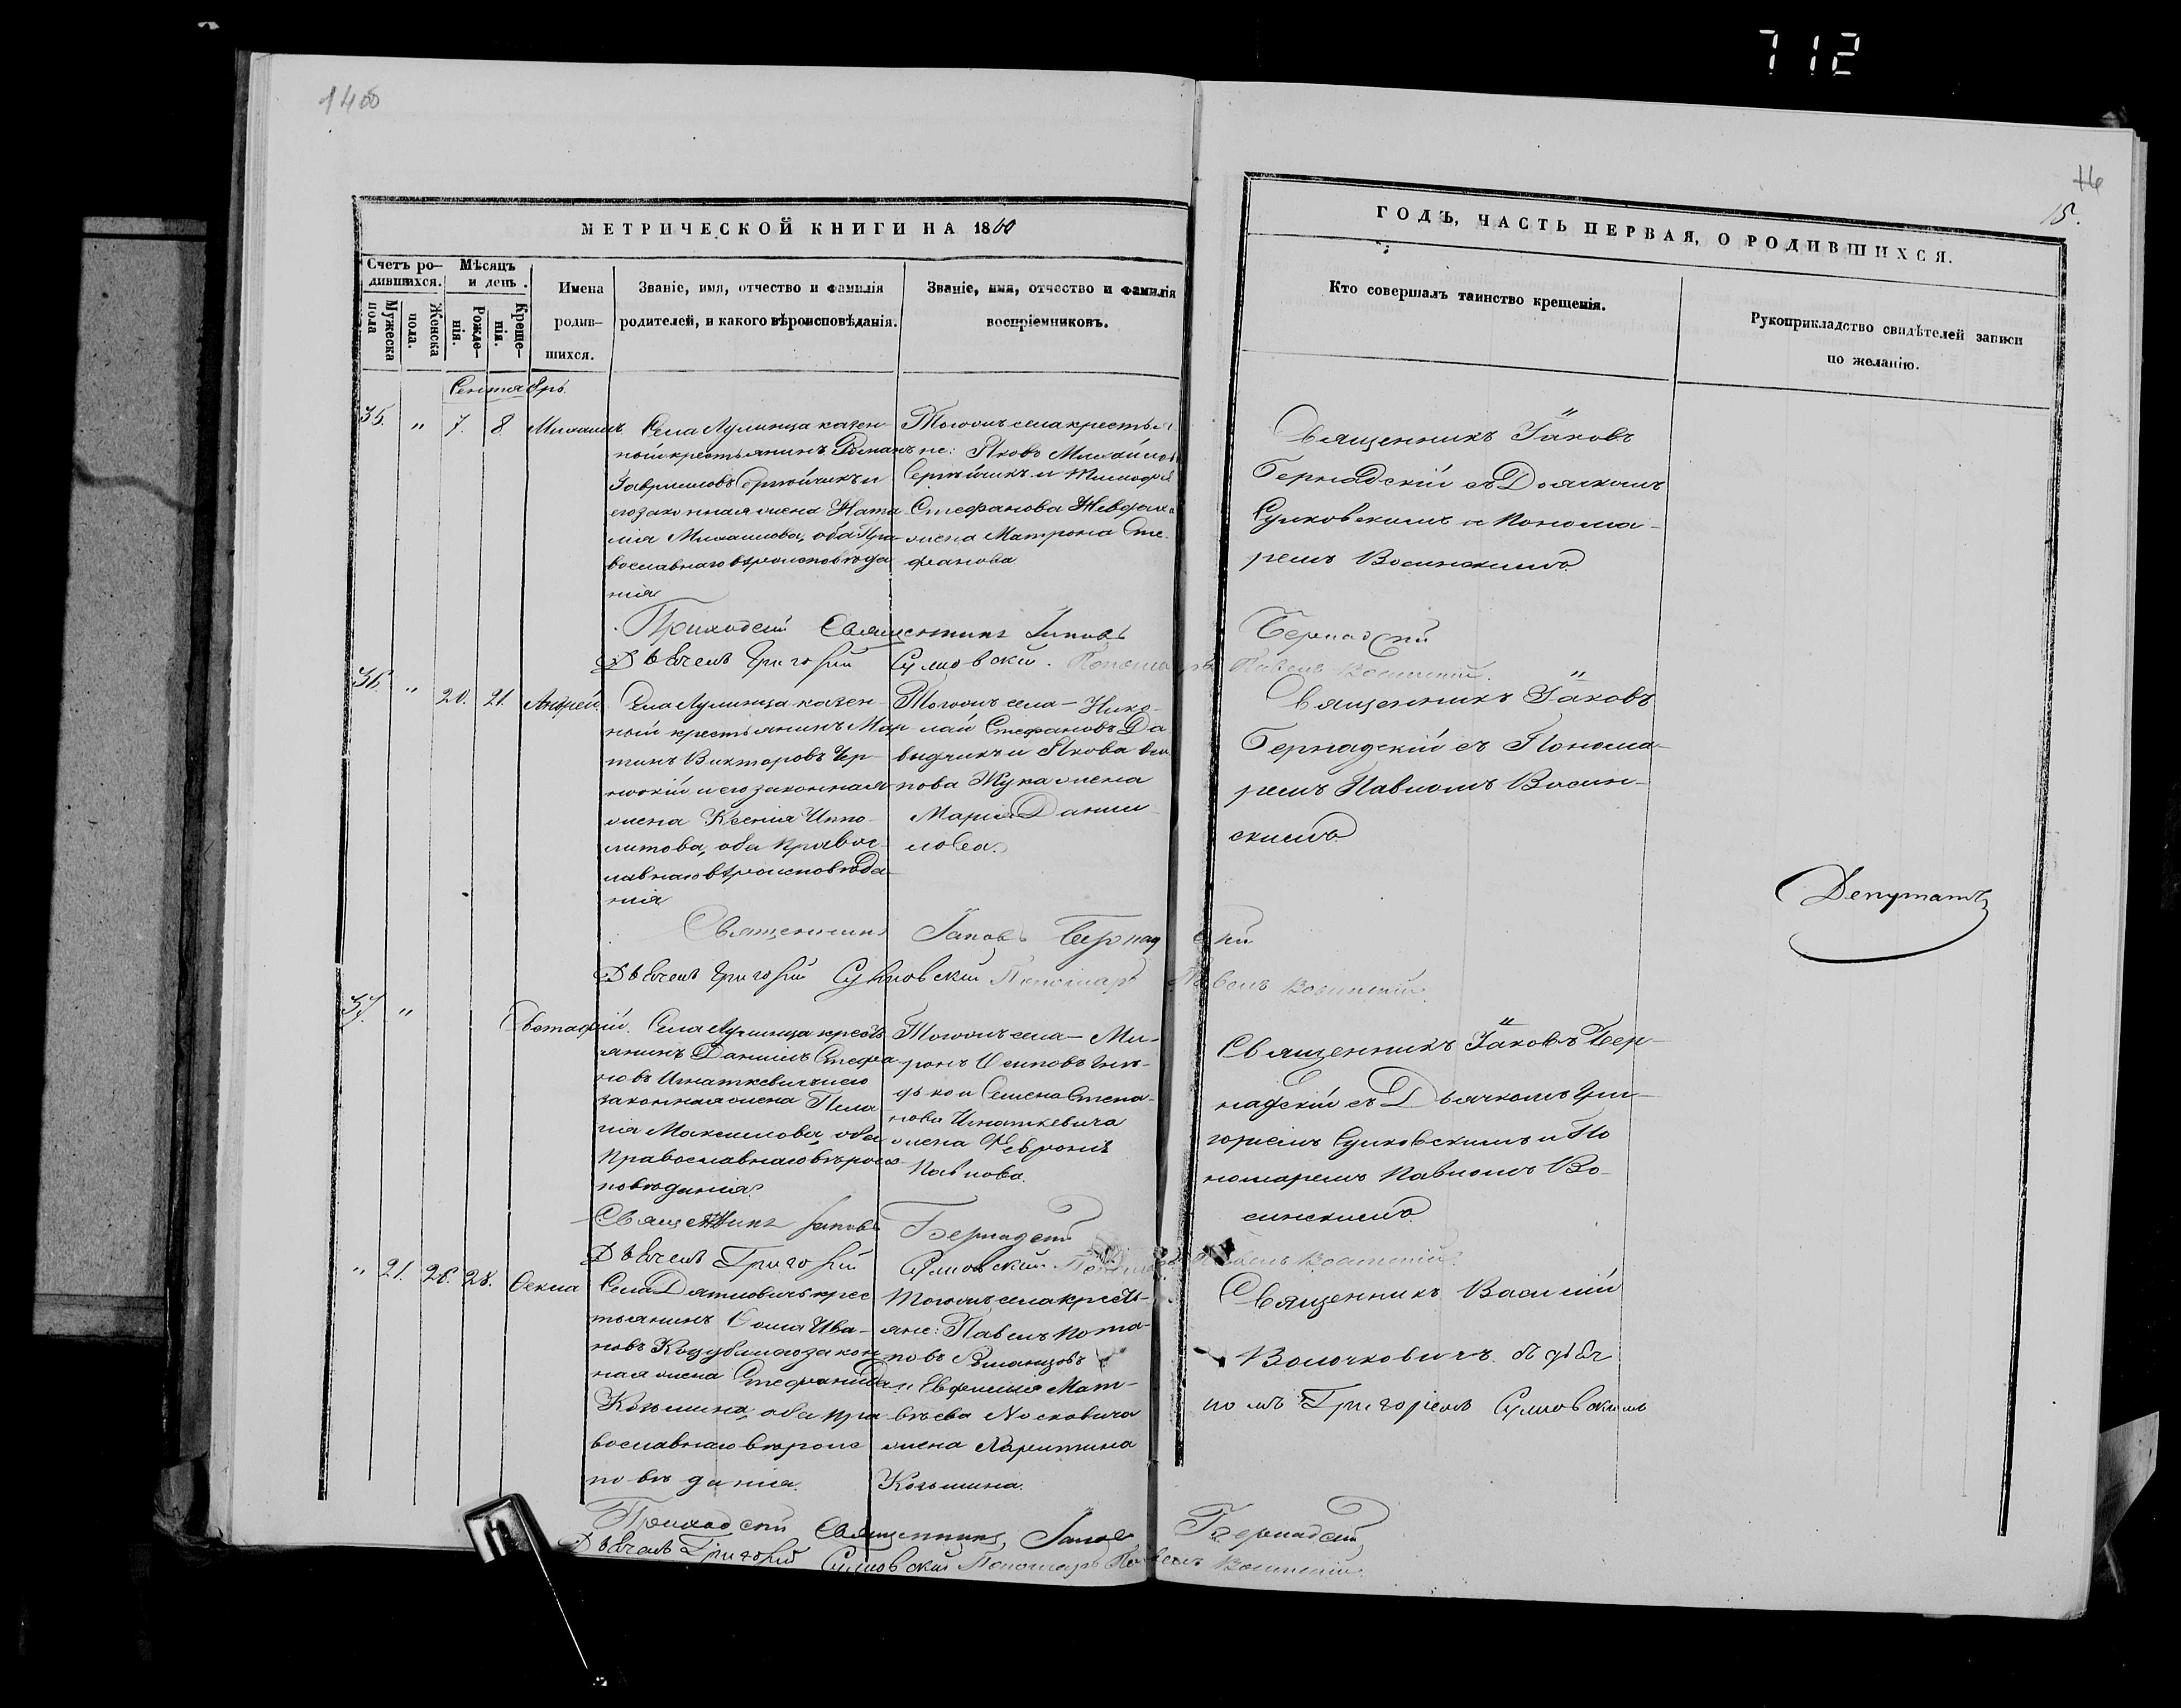 712
1400
16
15.
МЕТРИЧЕСКОЙ КНИГИ НА 1860
ГОДЪ, ЧАСТЬ ПЕРВАЯ, О РОДИВШИХСЯ.
Счетъ ро-
дившихся.
Мужеска
пола
Женска
пола.
Мѣсяцъ
и день.
Рожде-
нія.
Креще-
нія.
Имена
родив-
шихся.
Званіе, имя, отчество и фамилія
родителей, и какого вѣроисповѣданія.
Званіе, имя, отчество и фамилія
воспріемниковъ.
Кто совершалъ таинство крещенія.
Рукоприкладство свидѣтелей записи
по желанію.
Сентябрь.
35. " 7. 8. Михаилъ
Села Лулинца казен
ный крестьянинъ Романъ
Гавриловъ Сергѣйчикъ и
его законная жена Ната
лія Михаилова, оба Пра-
вославнаго вѣроисповѣда
нія
Тогожъ села крестья
не: Яковъ Михайловъ
Сергѣйчикъ и Тимофея
Стефанова
жена Матрона Сте-
фанова
Священникъ Іаковъ
Бернадскій съ Дьячкомъ
Сулковскимъ и Понома-
ремъ Восинскимъ
Приходскій Священникъ Іаковъ Бернадскій
Дьячекъ Григорій Сулковскій. Пономарь Павелъ Восинскій.
36. " 20. 21. Андрей
Села Лулинца казен-
ный крестьянинъ Мар
тинъ Викторовъ
и его законная
жена Ксенія Иппо-
литова, оба правос-
лавнаго вѣроисповѣда
нія
Тогожъ села – Нико-
лай Стефановъ Да
выдчикъ и Якова
Жука жена
Марія Дани
лова.
Священникъ Іаковъ
Бернадскій съ Понома-
ремъ Павломъ Восин-
скимъ
Депутатъ
Священникъ Іаковъ Бернадскій
Дьячекъ Григорій Сулковскій Пономарь Павелъ Восинскій.
37. " Евстафій.
Села Лулинца кресть
янинъ Даніилъ Стефа
новъ Игнаткевичъ и его
законная жена Пела
гія Максимова, оба
Православнаго вѣроис
повѣданія
Тогожъ села – Ми-
ронъ Осиповъ
и Семена Степа-
нова Игнаткевича
жена Февронія
Павлова.
Священникъ Іаковъ Бер-
надскій съ Дьячкомъ Гри-
горіемъ Сулковскимъ и По
номаремъ Павломъ Во-
синскимъ
Священникъ Іаковъ Бернадскій
Дьячекъ Григорій Сулковскій Пономарь Павелъ Восинскій.
" 21. 28. 28. Ѳекла
Села Дятловичъ крес
тьянинъ Ѳома Ива-
новъ закон
ная жена Стефанида
Козьмина, оба пра
вославнаго вѣроис
повѣданія.
Тогожъ села кресть-
яне: Павелъ Пота-
повъ Романцовъ
и Евфимія Мат-
вѣева Носковича
жена Харитина
Козьмина.
Священникъ Василій
Волочковичъ съ дьяч
комъ Григоріемъ Сулковскимъ
Приходскій Священникъ Іаковъ Бернадскій
Дьячекъ Григорій Сулковскій Пономарь Павелъ Восинскій.